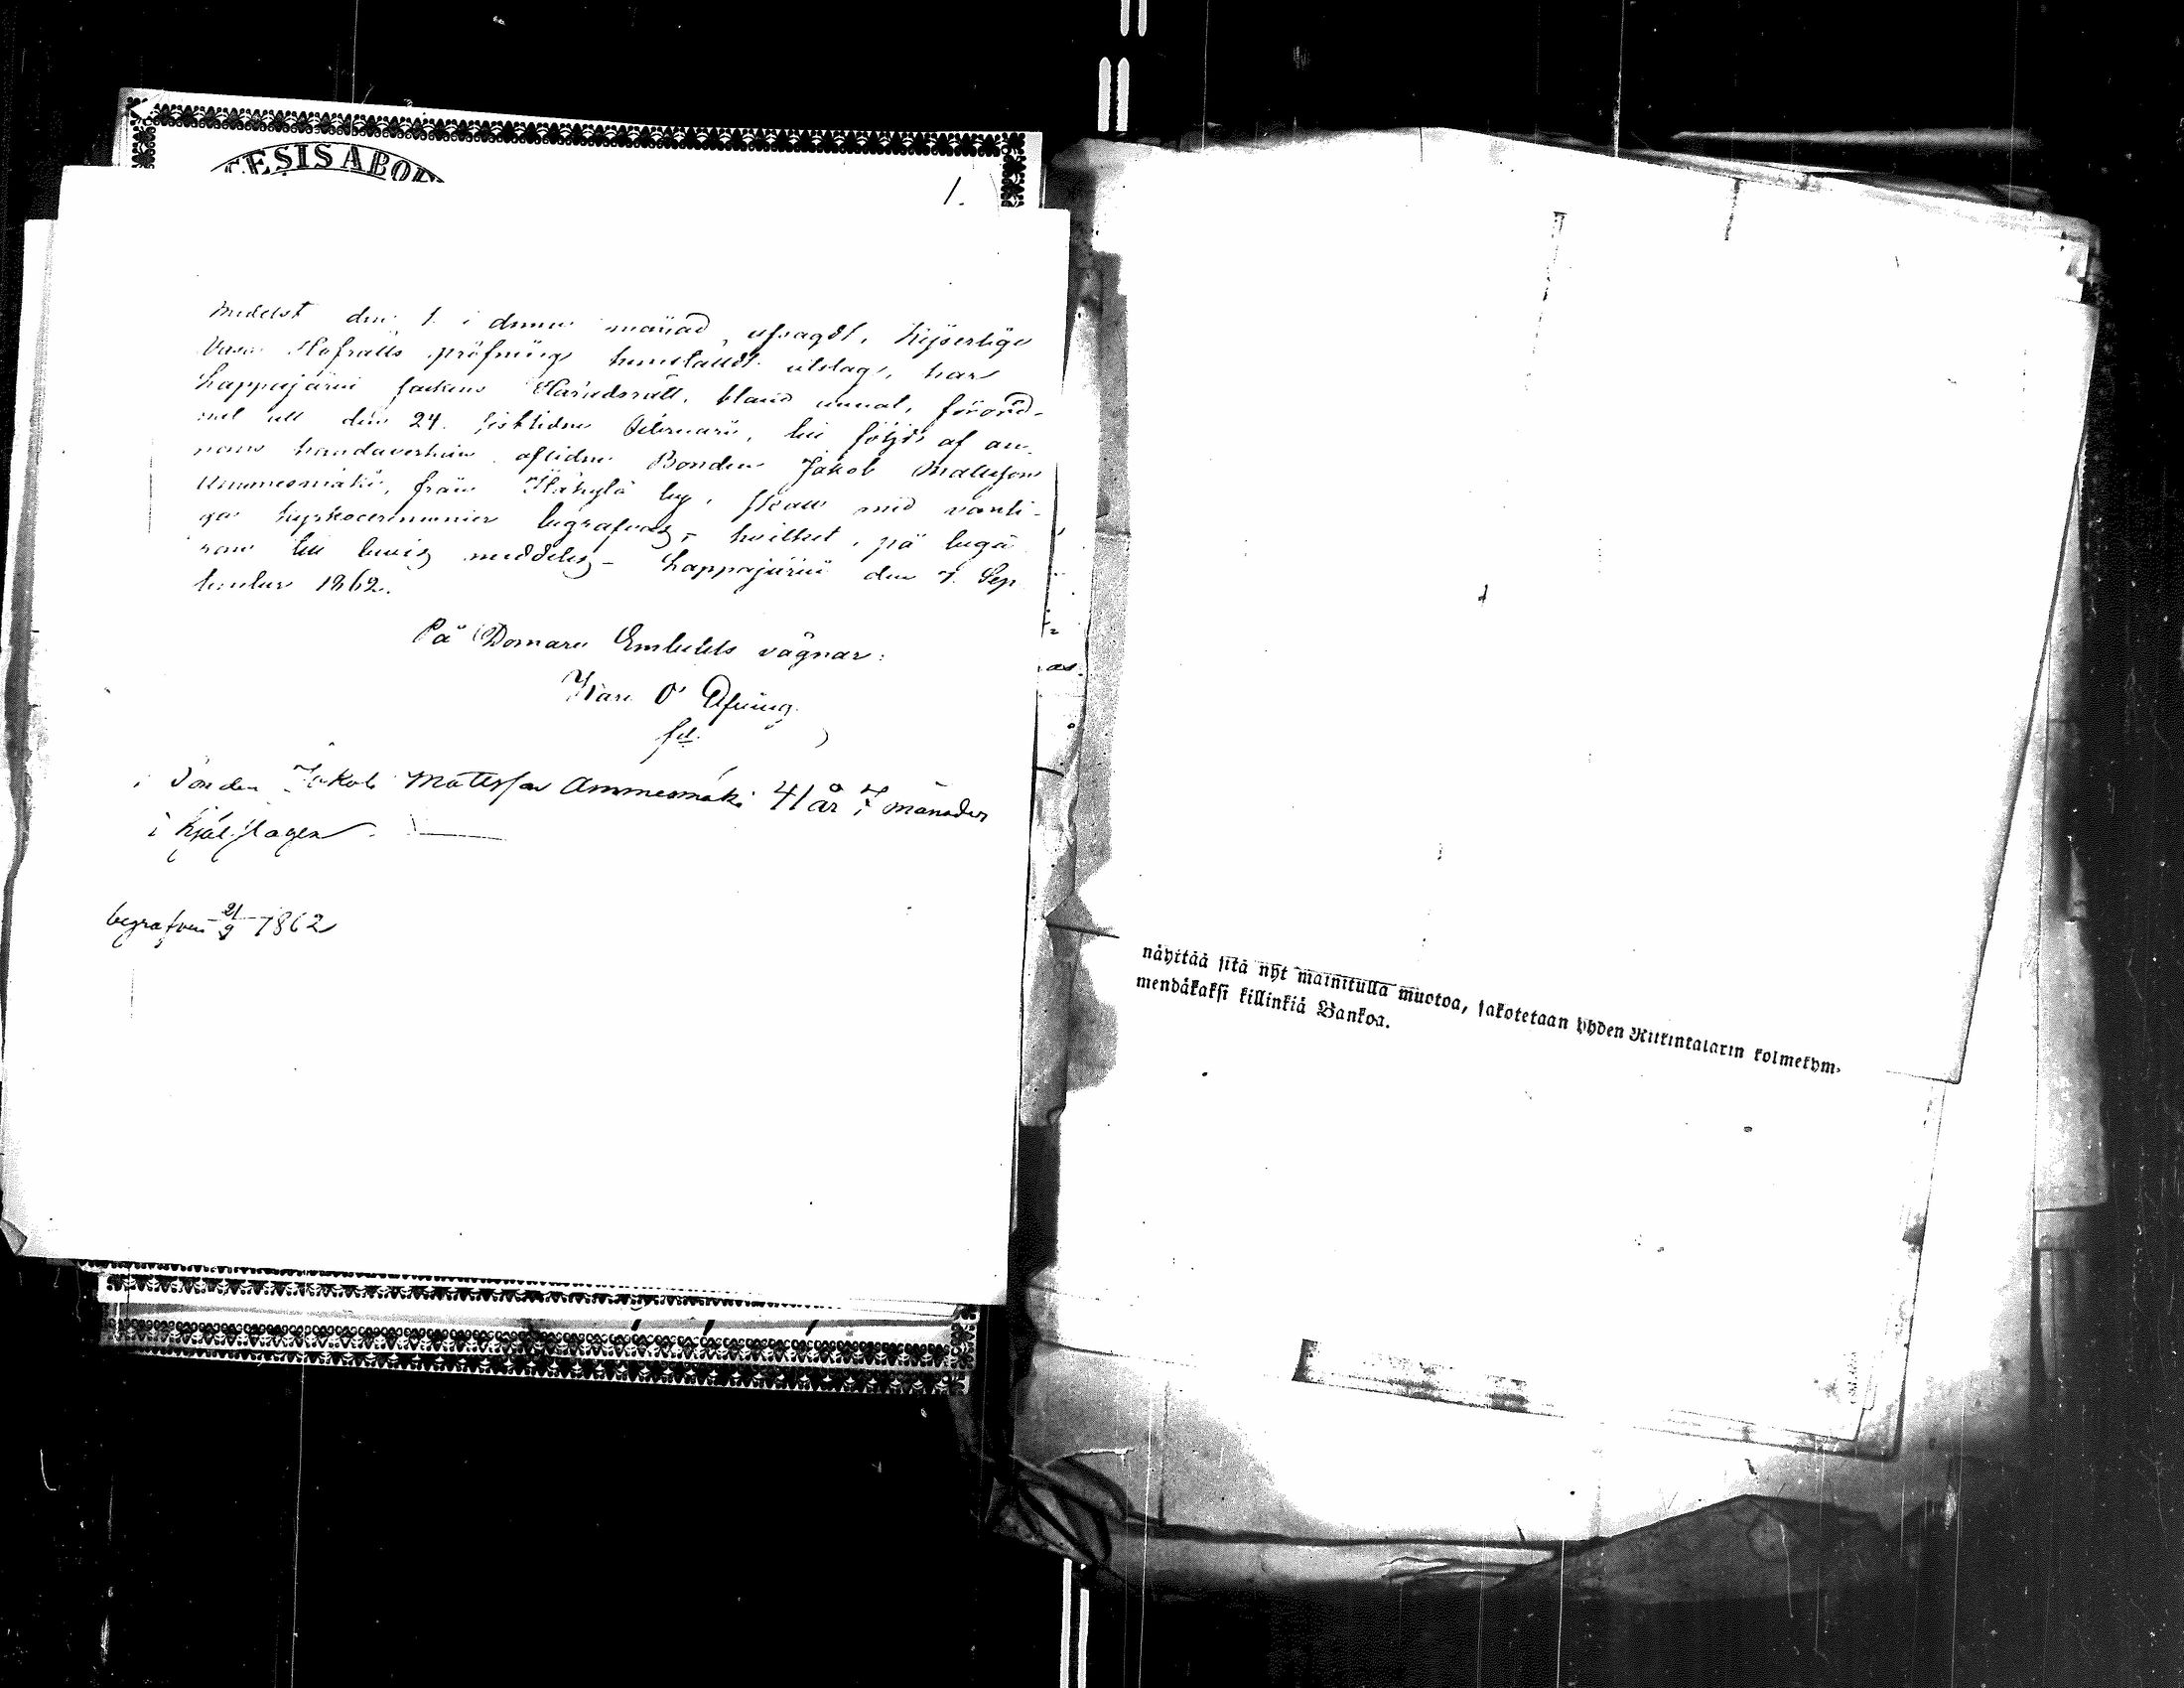 CESIS ABO
1.
medelst den 1. i denna månad afsagdt, Kejserliga
Vasa Hofrätts pröfning hemstäldt utslag, har
Lappajärvi sockens Häradsrätt, bland annat, förord-
nat att den 24. sistlidne Februarii, till följd af an-
nans handaverkan aflidne Bonden Jakob Mattsson
Ammesmäki, från Itäkylä by, skall med vanli-
ga kyrkoceremonier begrafvas, - hvilket, på begä
ran till bevis meddelas - Lappajärvi den 7. Sep
tember 1862.
På Domare Embetets vägnar:
as
Bonden Jakob Mattsson Ammesmäki 41 år 7 månader
i
begrafven 21/9 1862
näyttää sitä nyt mainitulla muotoa, sakotetaan yhden Riikintalarin kolmekym-
mendäkaksi killinkiä Bankoa.